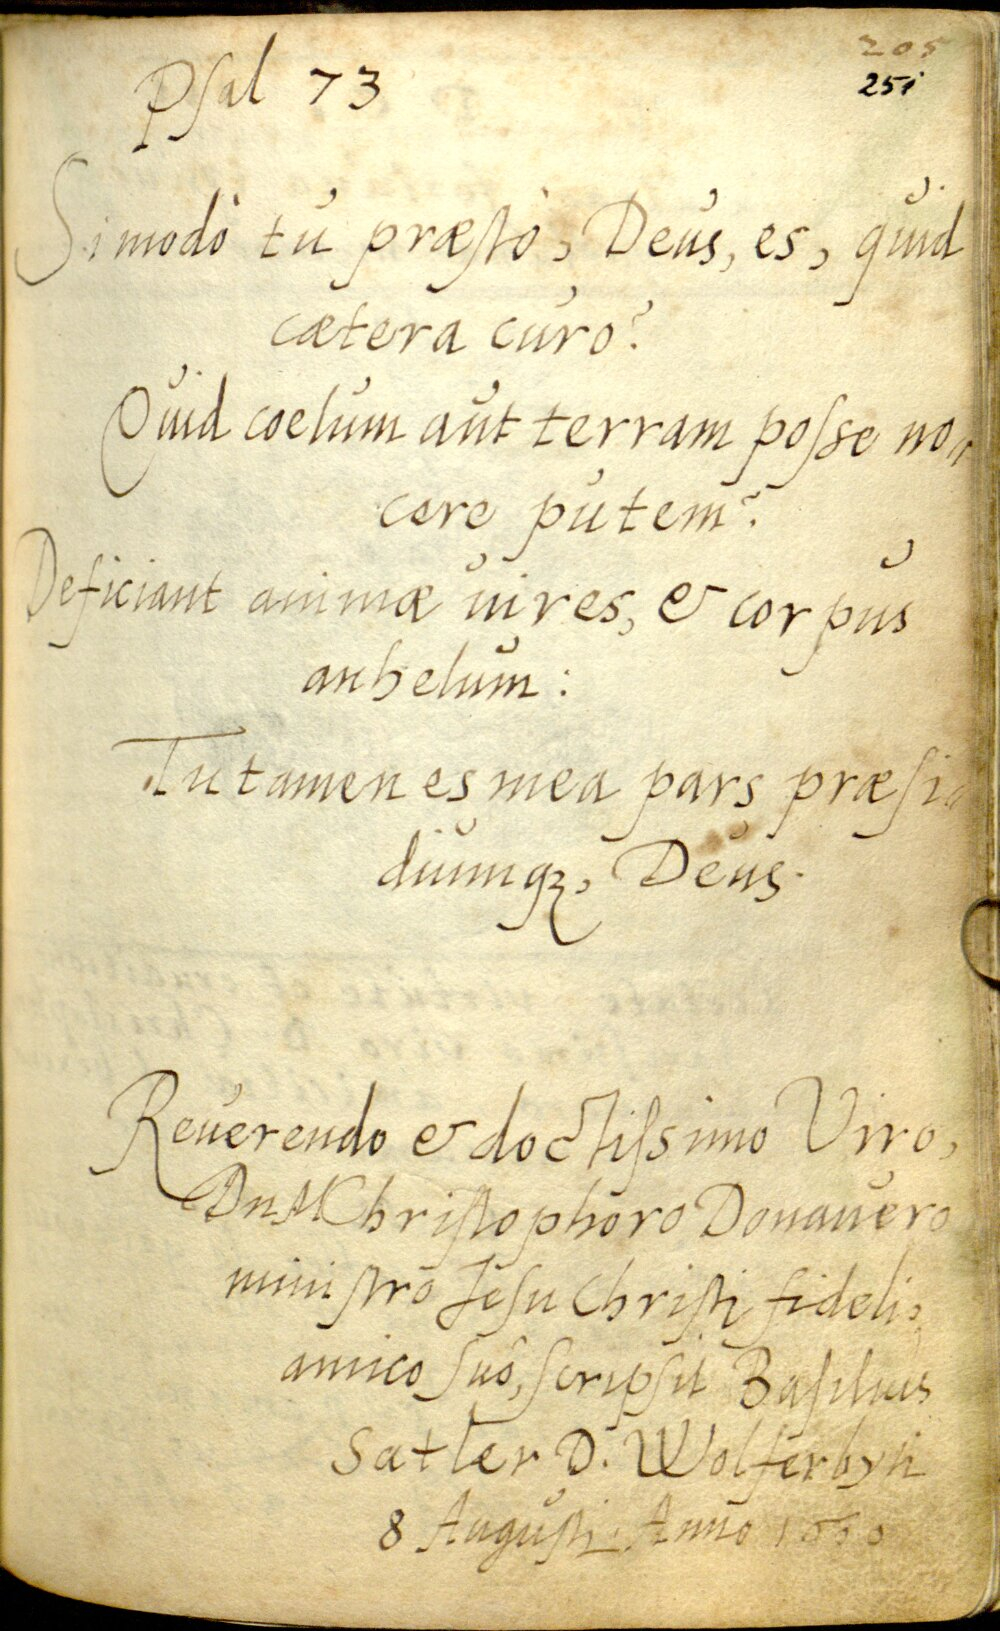 205
251
Psal 73
Si modò tu præstò, Deus, es, quid
cætera curo?
Quid coelum aut terram posse no
cere putem?
Deficiant animæ uires, & corpus
anhelum:
Tu tamen es mea pars præsi
diumq3, Deus.
Reuerendo & doctissimo Viro,
Dn M Christophoro Donauero
ministro Jesu Christi fideli,
amico suo, scripsit Basilius
Satler D. Wolferbyti
8 Augusti. Anno